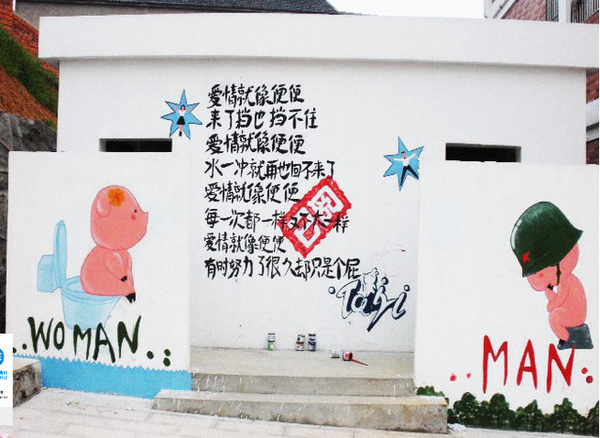 爱情就像便便
来了挡也挡不住
爱情就像便便
水一冲就再也回不来了
爱情就像便便
每一次都一样又不大一样
爱情就像便便
有时努力了很久却只是个屁
WOMAN
MAN